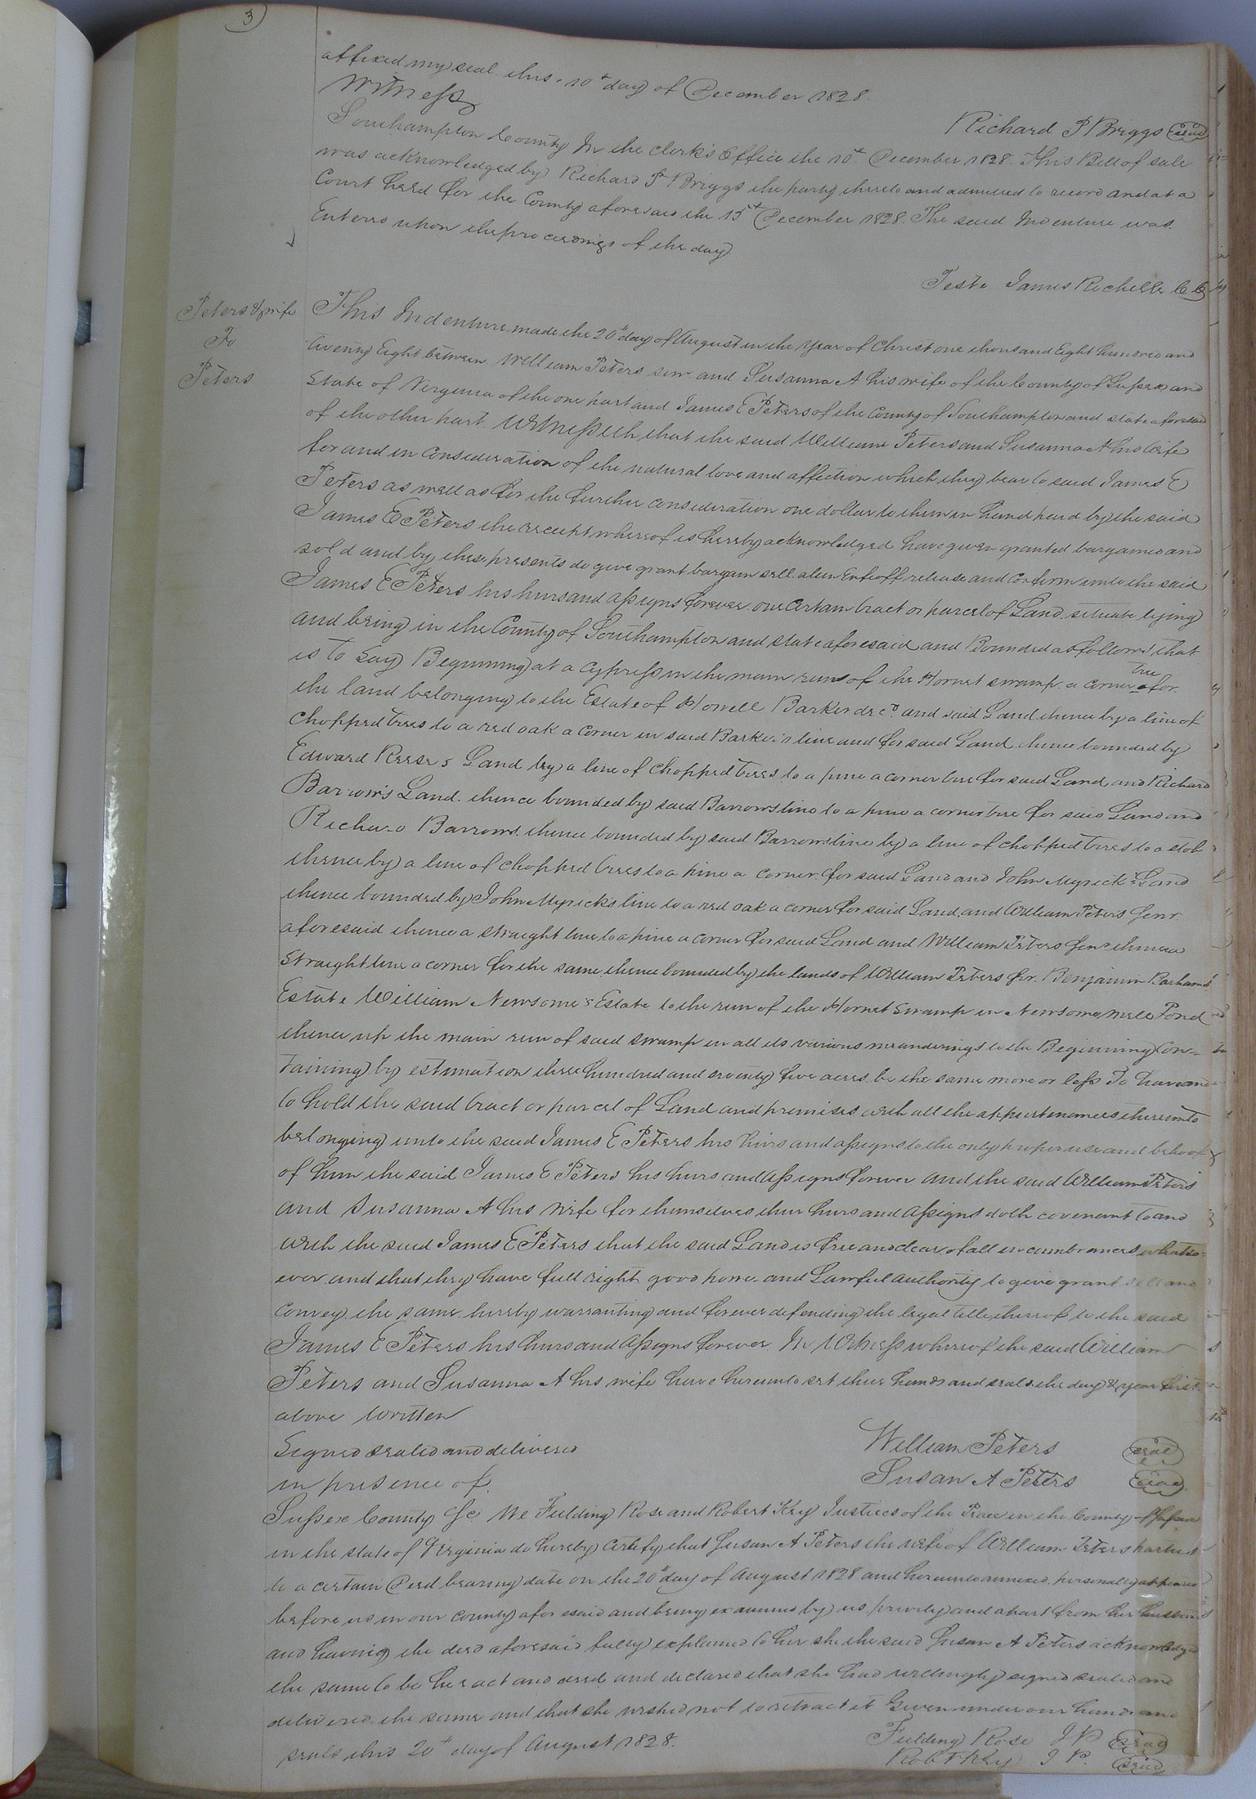 3
affixed my seal this 10th day of December 1828.
Witness
Richard P Briggs seal
Southampton County In the clerk's Office the 10th December 1828. This Bill of sale
was acknowledged by Richard P Briggs the party thereto and admitted to record and at a
Court held for the County aforesaid the 15th December 1828. The said Indenture was
Entered upon the proceedings of the day
Teste James Rochelle C.C.
Peters & wife
To
Peters
This Indenture made the 20th day of August in the year of Christ one thousand Eight hundred and
twenty Eight between William Peters senr and Susanna A his wife of the County of Sussex and
State of Virginia of the one part and James E Peters of the County of Southampton and state aforesaid
of the other part Witnesseth that the said William Peters and Susanna A his wife
for and in consideration of the natural love and affection which they bear to said James E
Peters as well as for the further consideration one dollar to them in hand paid by the said
James E Peters the receipt whereof is hereby acknowledged have given granted bargained and
sold and by these presents do give grant bargain sell alien Enfeoff release and Confirm unto the said
James E Peters his heirs and assigns forever one certain tract or parcel of Land situate lying
and being in the County of Southampton and state aforesaid and Bounded as follows that
is to say Beginning at a cypress in the main run of the Hornet swamp a corner tree for
the land belonging to the Estate of Howell Barker decd and said Land thence by a line of
chopped trees to a red oak a corner in said Barker's line and for said Land thence bounded by
Edward Reese's Land by a line of chopped trees to a pine a corner tree for said Land and Richard
Barrow's Land thence bounded by said Barrows line to a pine a corner tree for said Land and
Richard Barrows thence bounded by said Barrows line by a line of chopped trees to a stob
thence by a line of chopped trees to a pine a corner for said Land and John Myrick's Land
thence bounded by John Myricks line to a red oak a corner for said Land and William Peters Senr
aforesaid thence a straight line to a pine a corner for said Land and William Peters Senr thence a
Straight line a corner for the same thence bounded by the lands of William Peters Sr. Benjamin Barhams
Estate William Newsome's Estate to the run of the Hornet Swamp in Newsoms Mill Pond
thence up the main run of said swamp in all its various meanderings to the Beginning Con-
taining by estimation three hundred and seventy five acres be the same more or less To have and
to hold the said tract or parcel of Land and premises with all the appurtenances thereunto
belonging unto the said James E Peters his heirs and assigns to the only proper use and behoof
of him the said James E Peters his heirs and Assigns forever and the said William Peters
and Susanna A his wife for themselves their heirs and Assigns doth covenant to and
with the said James E Peters that the said Land is free and clear of all incumbrances whatso-
ever and that they have full right good power and Lawful Authority to give grant sell and
convey the same hereby warranting and forever defending the legal title thereof to the said
James E Peters his heirs and Assigns forever In Witness whereof the said William
Peters and Susanna A his wife have hereunto set their hands and seals the day & year first
above written
Signed sealed and delivered
in presence of
William Peters seal
Susan A Peters seal
Sussex County Sc We Fielding Rose and Robert Key Justices of the Peace in the County aforesaid
in the state of Virginia do hereby certify that Susan A Peters the wife of William Peters parties
to a certain Deed bearing date on the 20th day of August 1828 and hereunto annexed personally appeared
before us in our county aforesaid and being examined by us privily and apart from her husband
and having the deed aforesaid fully explained to her she the said Susan A Peters acknowledged
the same to be her act and deed and declared that she had willingly signed sealed and
delivered the same and that she wished not to retract it Given under our hands and
seals this 20th day of August 1828.
Fielding Rose J P seal
Robt Key J P. seal